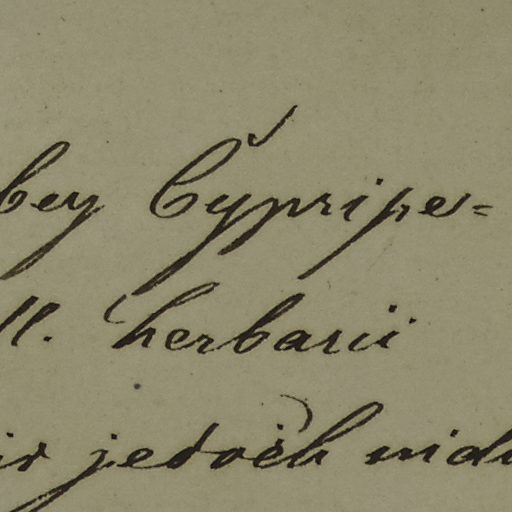 bey Cypripe=
ll. herbarii
ir jedoch nich